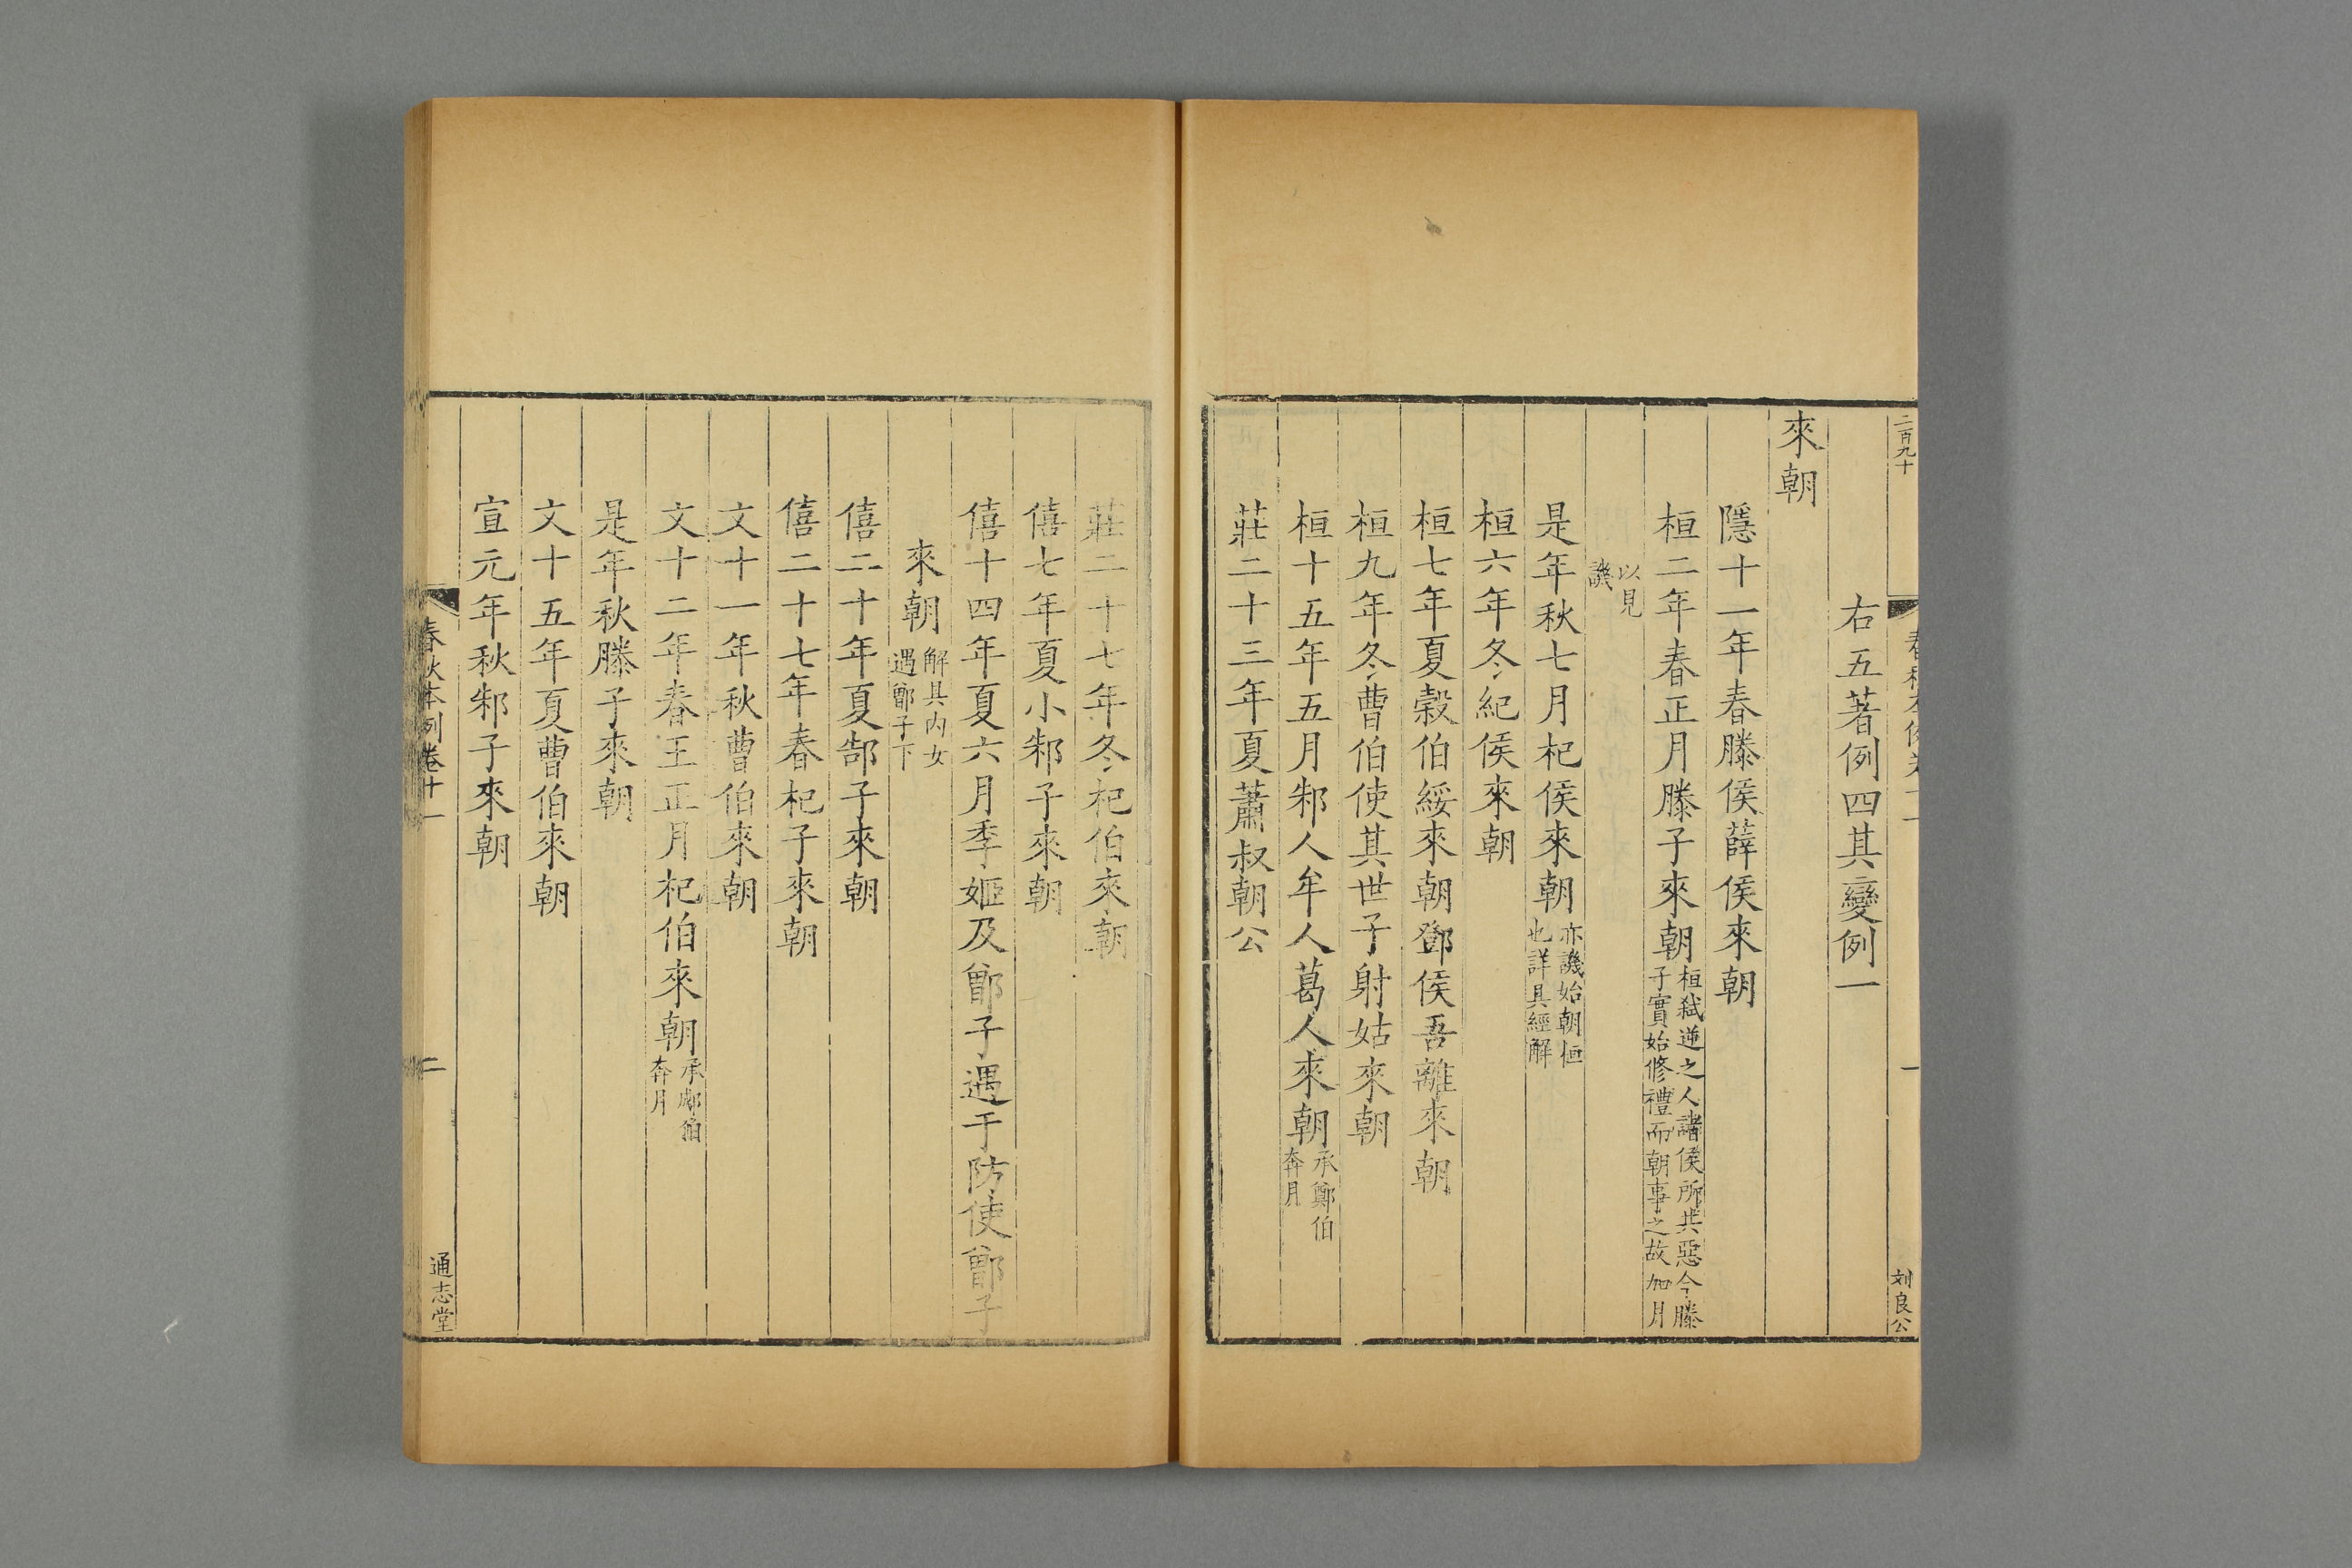 二百九十
一
刘良公
右五著例四其變例一
來朝
隱十一年春滕侯薛侯來朝
桓二年春正月滕子來朝桓弑逆之人諸侯所共惡今滕子實始修禮而朝事之故加月
以見譏
是年秋七月杞侯來朝亦譏始朝桓也詳具經解
桓六年冬紀侯來朝
桓七年夏穀伯綏來朝鄧侯吾離來朝
桓九年冬曹伯使其世子射姑來朝
桓十五年五月邾人牟人葛人來朝承鄭伯奔月
莊二十三年夏蕭叔朝公
莊二十七年冬杞伯來朝
僖七年夏小邾子來朝
僖十四年夏六月季姬及鄫子遇于防使鄫子
來朝解其內女遇鄫子下
僖二十年夏郜子來朝
僖二十七年春杞子來朝
文十一年秋曹伯來朝
文十二年春王正月杞伯來朝承郕伯奔月
是年秋滕子來朝
文十五年夏曹伯來朝
宣元年秋邾子來朝
春秋本例卷十一
二
通志堂